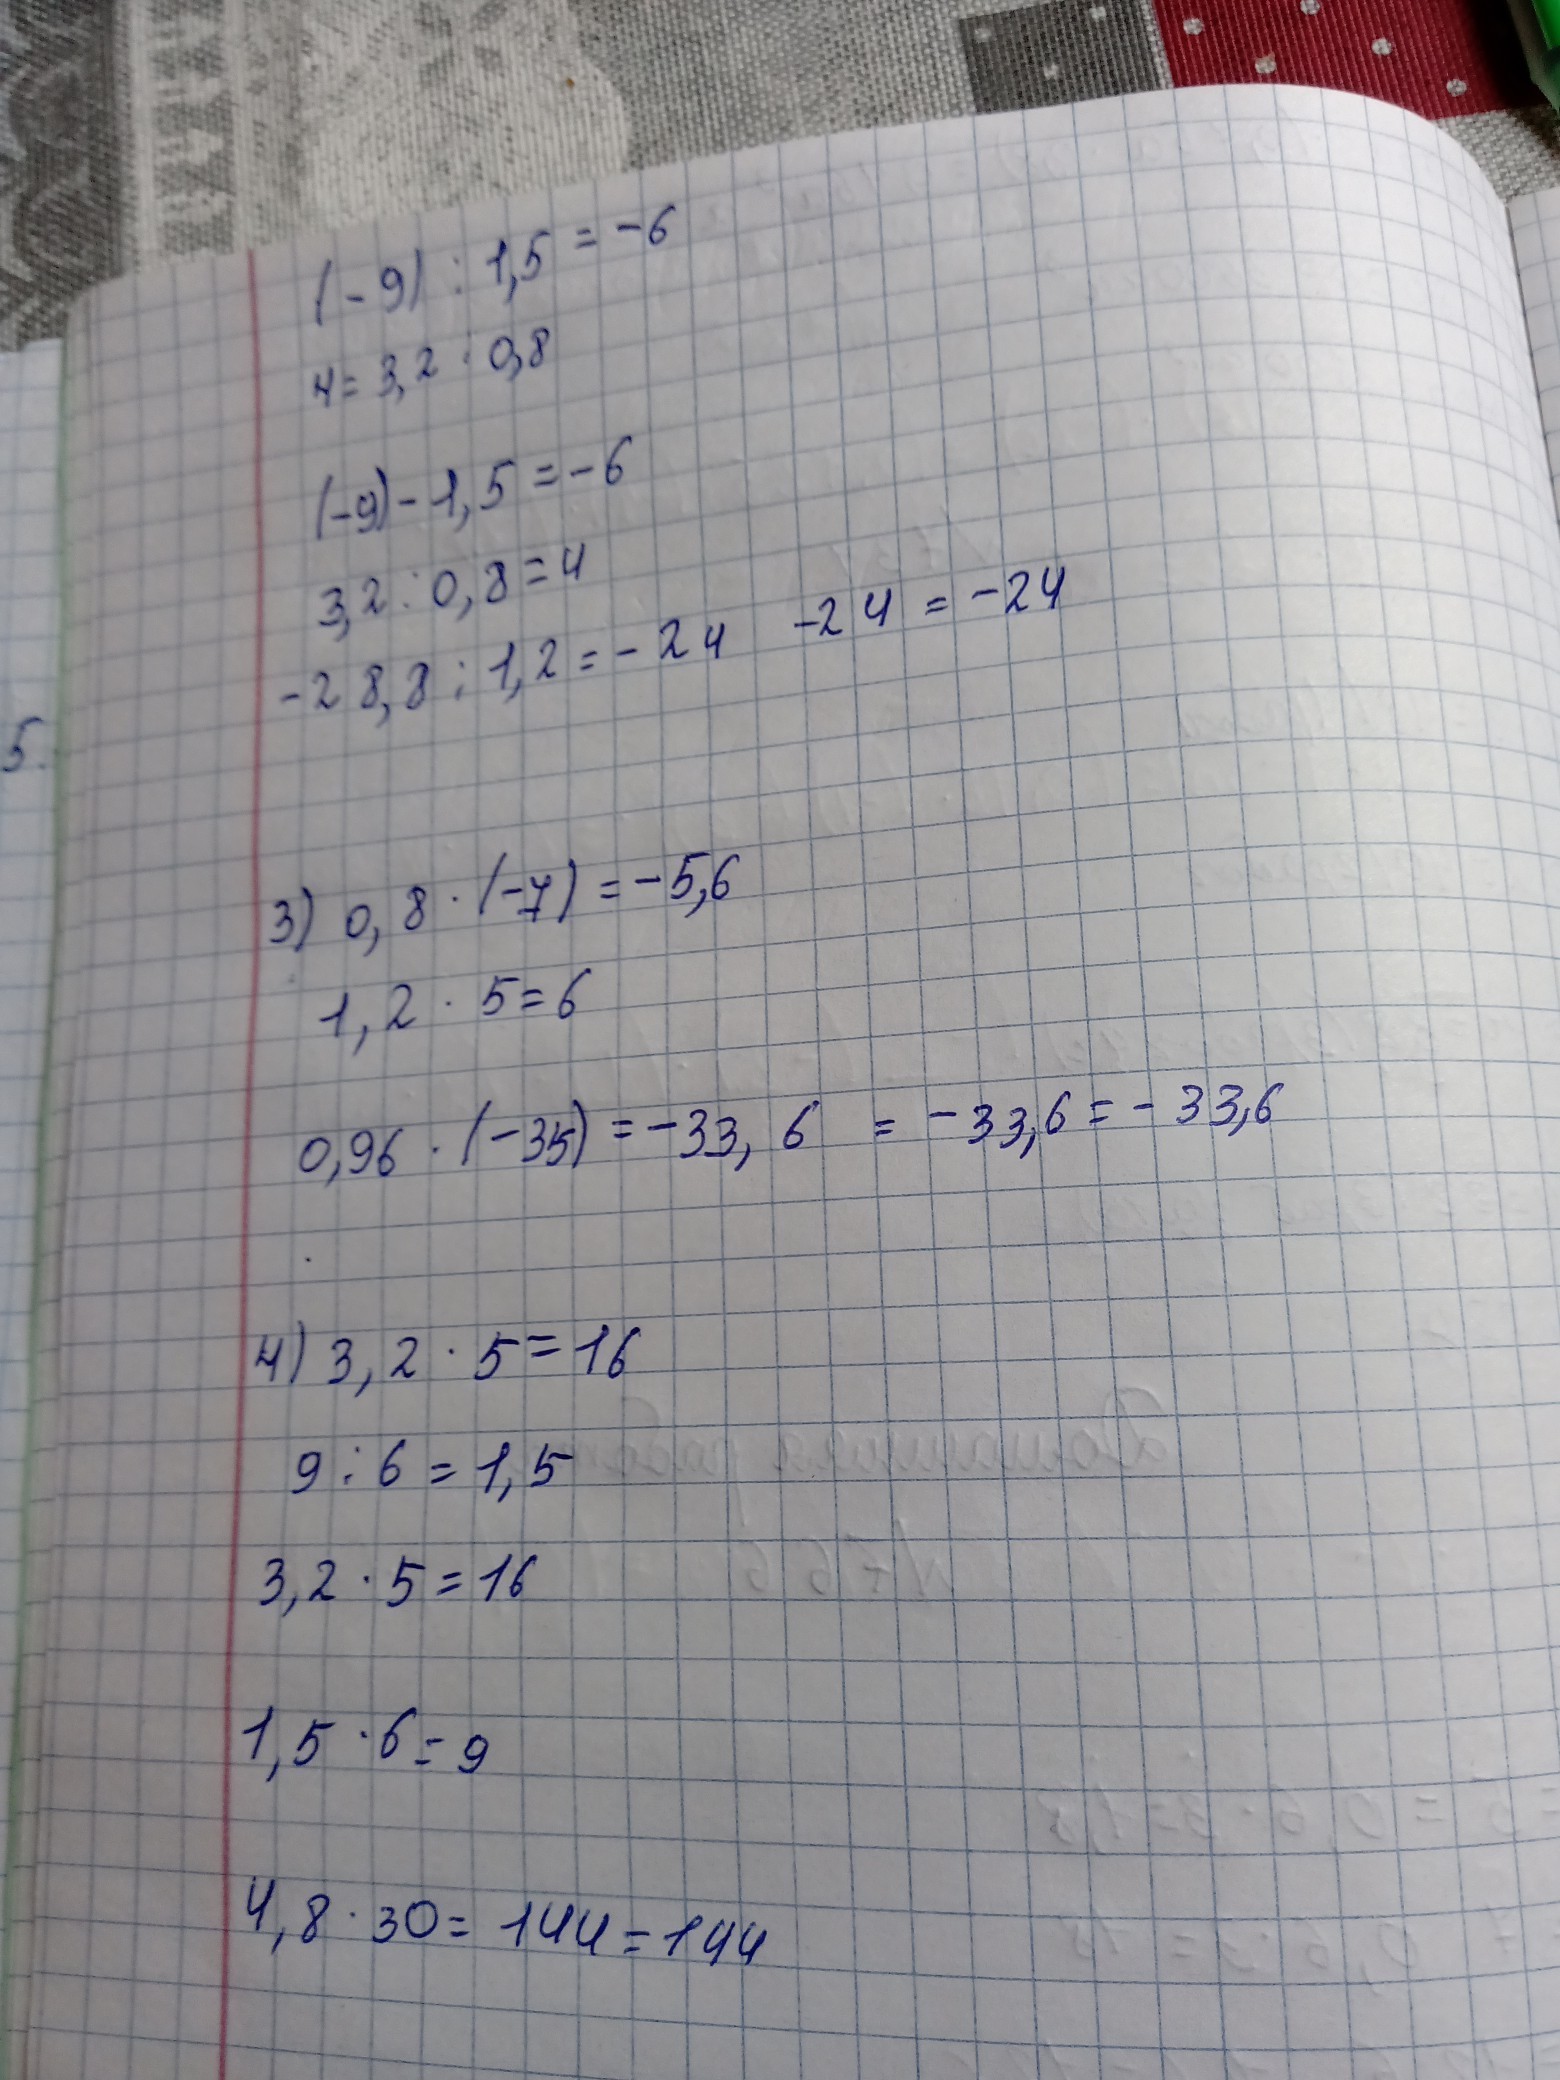 (-9) : 1,5 = -6
4 = 3,2 : 0,8
(-9) - 1,5 = -6
3,2 : 0,8 = 4
-28,8 : 1,2 = -24 -24 = -24
5.
3) 0,8 · (-7) = -5,6
1,2 · 5 = 6
0,96 · (-35) = -33,6 = -33,6 = -33,6
4) 3,2 · 5 = 16
9 : 6 = 1,5
3,2 · 5 = 16
1,5 · 6 = 9
4,8 · 30 = 144 = 144